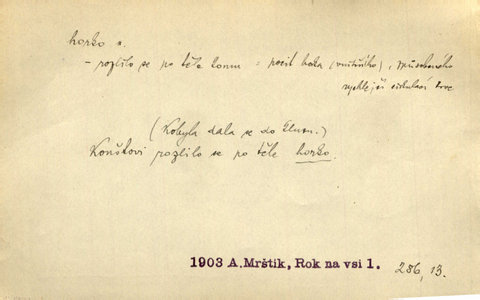 horko s.
– rozlilo se po těle komu = pocit horka (vnitřního), způsobeného
rychlejší cirkulací krve
(Kobyla dala se do klusu.)
Konštovi rozlilo se po těle horko.
1903 A. Mrštík, Rok na vsi 1. 286, 13.